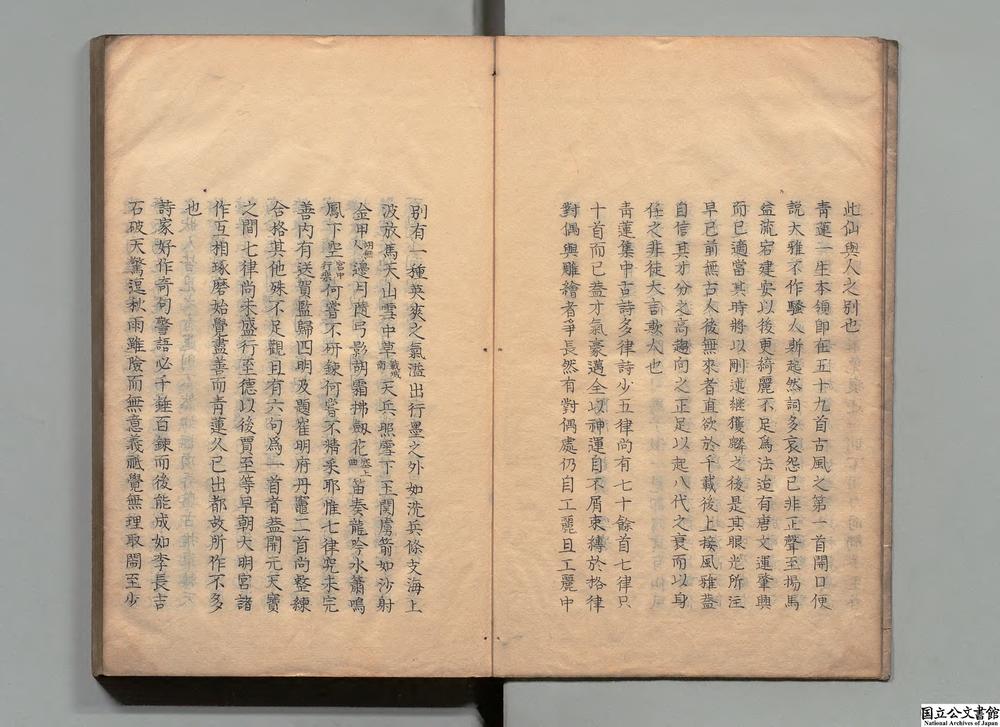 此仙與人之別也
青蓮一生本領即在五十九首古風之第一首開口便
說大雅不作騷人斯起然詞多哀怨已非正聲至揚馬
益流宕建安以後更綺麗不足為法迨有唐文運肇興
而已適當其時將以刪述繼獲麟之後是其眼光所注
早已前無古人後無來者直欲於千載後上接風雅蓋
自信其才分之高趨向之正足以起八代之衰而以身
任之非徒大言欺人也
青蓮集中古詩多律詩少五律尚有七十餘首七律只
十首而已蓋才氣豪邁全以神運自不屑束縛於格律
對偶與雕繪者爭長然有對偶處仍自工麗且工麗中
別有一種英爽之氣溢出行墨之外如洗兵條支海上
波放馬天山雪中草戰城南天兵照雪下玉關虜箭如沙射
金甲胡無人邊月隨弓影胡霜拂劍花塞上曲笛奏龍吟水簫鳴
鳳下空宮中行樂何嘗不研鍊何嘗不精采耶惟七律究未完
善內有送賀監歸四明及題崔明府丹竈二首尚整練
合格其他殊不足觀且有六句為一首者蓋開元天寶
之間七律尚未盛行至德以後賈至等早朝大明宮諸
作互相琢磨始覺盡善而青蓮久已出都故所作不多
也
詩家好作奇句警語必千錘百鍊而後能成如李長吉
石破天驚逗秋雨雖險而無意義祗覺無理取鬧至少
国立公文書館
National Archives of Japan